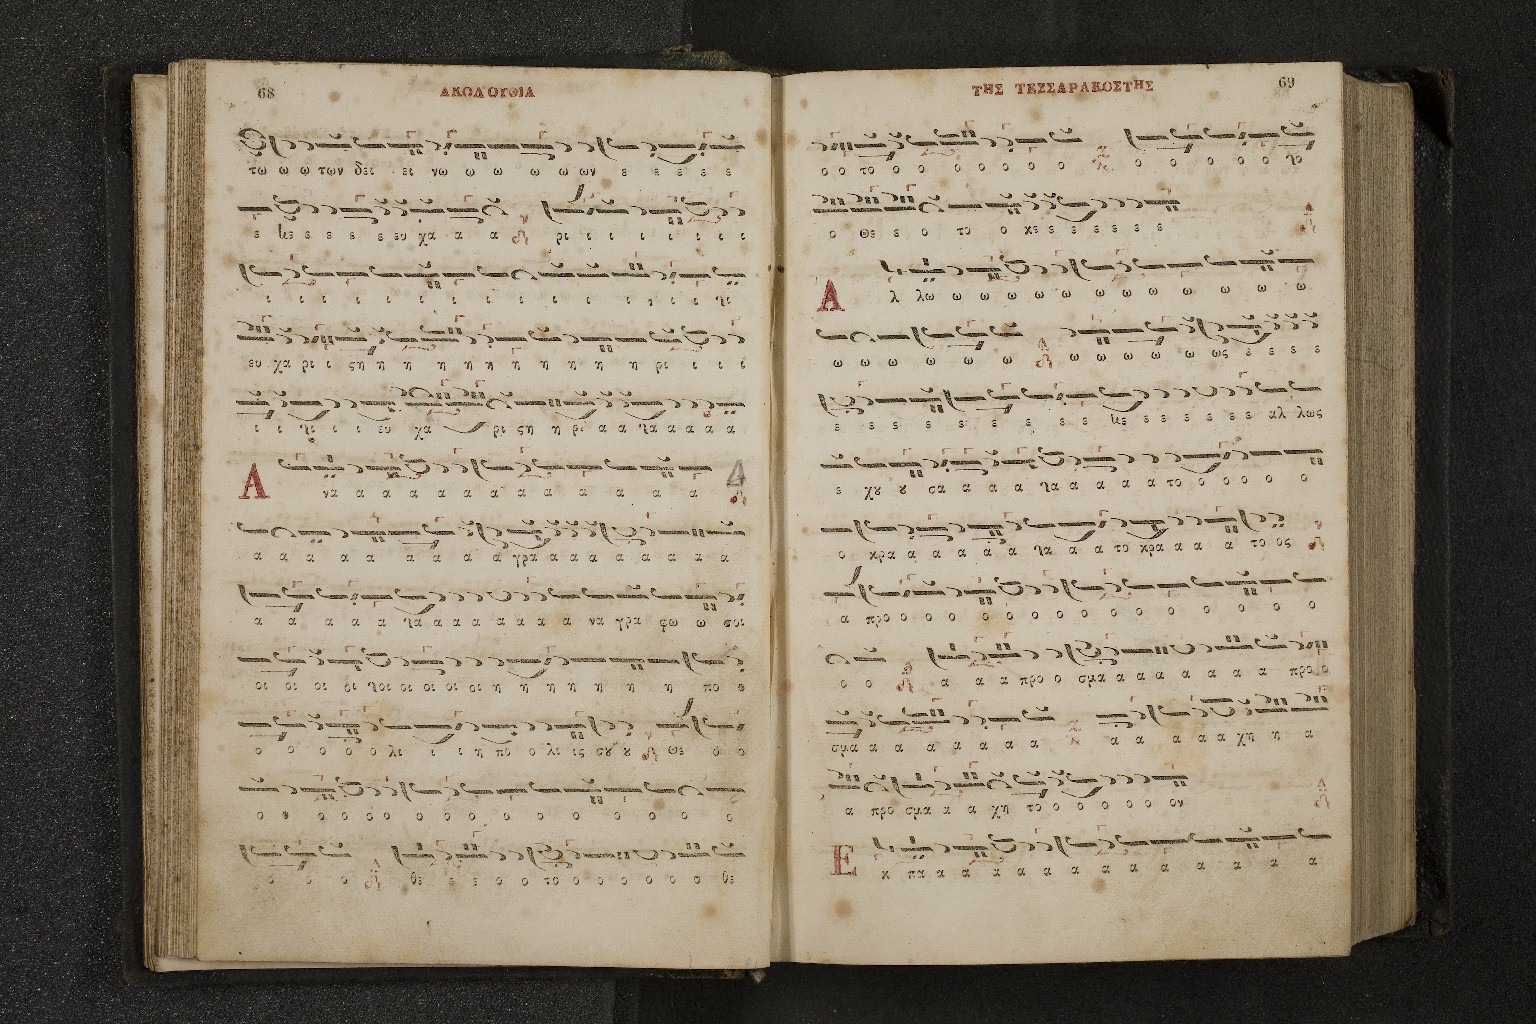 68
ΑΚΟΛΟΥΘΙΑ
τω ω ω των δει ει νω ω ω ω ω ων ε ε ε ε ε
ε κε ε ε ε ε ευ χα α α α ρι ι ι ι ι ι ι ι
ι ι ι ι ι ι ι ι ι ι ι ι ι ι
ευ χα ρι ι ςη η η η η η η η η η η ρι ι ι ι
ευ χα ρι ςη η ρι α α α α α α
Α να α α α α α α α α α α α α α
α α α α α α α α α γρα α α α α α α α α
α α α α α α α α α α α α να γρα φω ω σοι
οι οι οι οι οι οι οι οι οι η η η η η η η πο ο
ο ο ο ο ο ο λι ι ι η πο ο λι ις σȣ ȣ Θε ο ο
ο ο ο ο ο ο ο ο ο ο ο ο ο ο ο ο
ο ο ο θε ε ε ο ο το ο ο ο ο ο ο θε
69
ΤΗΣ ΤΕΣΣΑΡΑΚΟΣΤΗΣ
ο ο το ο ο ο ο ο ο ο ο ο ο ο ο ο
ο Θε ε ο το ο κε ε ε ε ε ε
Α λ λω ω ω ω ω ω ω ω ω ω ω ω ω
ω ω ω ω ω ω ω ω ω ω ω ως ε ε ε ε
ε ε ε ε ε ε ε ε ε κε ε ε ε ε ε ε αλ λως
ε χȣ ȣ σα α α α α α α α α το ο ο ο ο ο
ο κρα α α α α α α α α το κρα α α α το ος
α προ ο ο ο ο ο ο ο ο ο ο ο ο ο ο ο
ο ο α α α προ ο σμα α α α α α α α α προ ο
σμα α α α α α α α α α α α α χη η α
α προ σμα α α χη το ο ο ο ο ο ον
Ε κ πα α α α α α α α α α α α α α